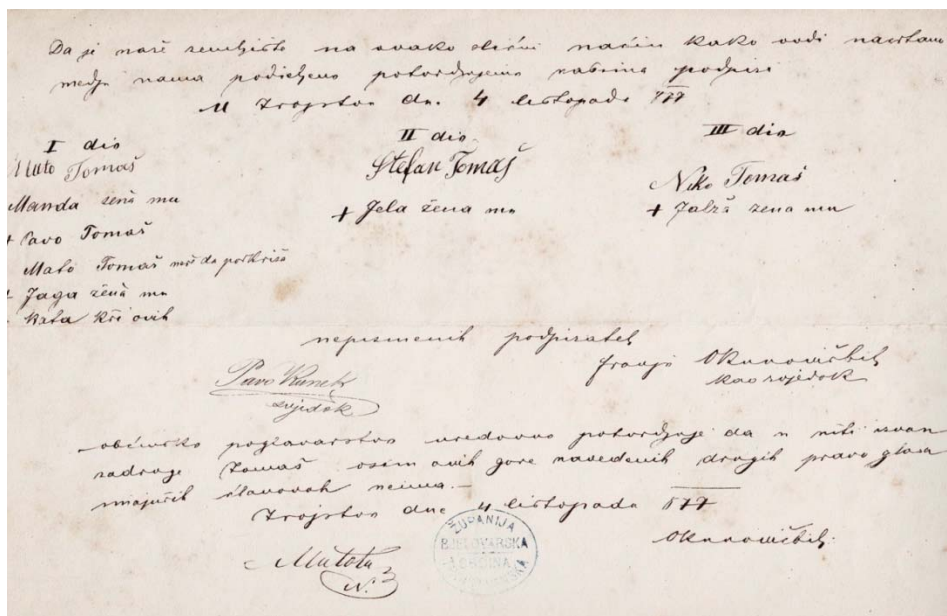 Da je naše zemljište na ovako slični način kako ovdi nacrtano
medju nama podieljeno potvrdjujemo našima podpisi
U Trojstvu dne 4 listopada 877
I dio
Mato Tomaš
Manda žena mu
+ Pavo Tomaš
Mato Tomaš
+ Jaga žena mu
Kata kći ovih
II dio.
Stefan Tomaš
+ Jela žena mu
III dio
Niko Tomaš
+ Jalža žena mu
nepismenih podpisatelj
Franjo
kao svjedok
Pavo Kunek
svjedok
obćinsko poglavarstvo uredovno potvrdjuje da u niti izvan
zadruge Tomaš osim ovih gore navedenih drugih pravo glasa
imajućih članovah neima.-
Trojstvo dne 4 listopada 877
ŽUPANIJA
BJELOVARSKA